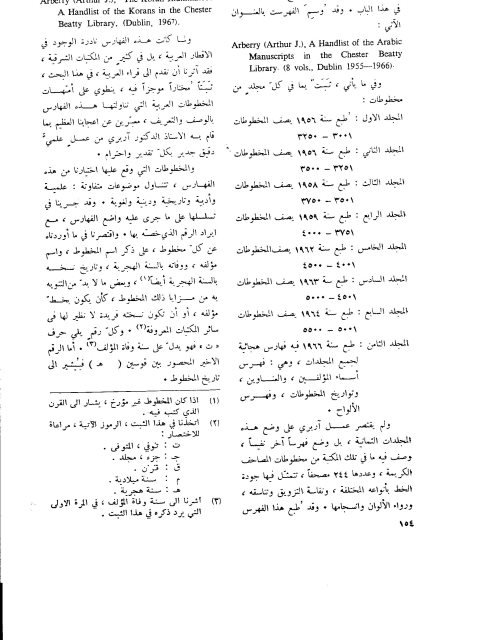 في هذا الباب ٠ وقد وسم الفهرست بالعنوان
الآتي :
Arberry (Arthur J.), A Handlist of the Arabic
Manuscripts in the Chester Beatty
Library. (8 vols., Dublin 1955—1966).
وفي ما يأتي ، ثبت بما في كل مجلد من
مخطوطات :
المجلد الاول : طبع سنة ١٩٥٦ يصف المخطوطات
٣٠٠١ – ٣٢٥٠
المجلد الثاني : طبع سنة ١٩٥٦ يصف المخطوطات
٣٢٥١ – ٣٥٠٠
المجلد الثالث : طبع سنة ١٩٥٨ يصف المخطوطات
٣٥٠١ – ٣٧٥٠
المجلد الرابع : طبع سنة ١٩٥٩ يصف المخطوطات
٣٧٥١ – ٤٠٠٠
المجلد الخامس : طبع سنة ١٩٦٢ يصف المخطوطات
٤٠٠١ – ٤٥٠٠
المجلد السادس : طبع سنة ١٩٦٣ يصف المخطوطات
٤٥٠١ – ٥٠٠٠
المجلد السابع : طبع سنة ١٩٦٤ يصف المخطوطات
٥٠٠١ – ٥٥٠٠
المجلد الثامن : طبع سنة ١٩٦٦ فيه فهارس هجائية
لجميع المجلدات ، وهي : فهرس
أسماء المؤلفين ، والعناوين ،
وتواريخ المخطوطات ، وفهرس
الألواح ٠
ولم يقتصر عمل آربري على وضع هذه
المجلدات الثمانية ، بل وضع فهرساً آخر نفيساً ،
وصف فيه ما في تلك المكتبة من مخطوطات المصاحف
الكريمة ، وعددها ٢٤٤ مصحفاً ، تتمثل فيها جودة
الخط بأنواعه المختلفة ، ونفاسة التزويق وتناسقه ،
ورواء الألوان وانسجامها ٠ وقد طبع هذا الفهرس
١٥٤
Arberry (Arthur J.), The Koran
A Handlist of the Korans in the Chester
Beatty Library, (Dublin, 1967).
ولما كانت هذه الفهارس نادرة الوجود في
الاقطار العربية ، بل في كثير من المكتبات الشرقية ،
فقد آثرنا أن نقدم الى قراء العربية ، في هذا البحث ،
ثبتاً مختاراً موجزاً فيه ، ينطوي على أمهات
المخطوطات العربية التي تناولتها هذه الفهارس
بالوصف والتعريف ، معبرين عن اعجابنا العظيم بما
قام به الاستاذ الدكتور آربري من عمل علمي
دقيق جدير بكل تقدير واحترام ٠
والمخطوطات التي وقع عليها اختيارنا من هذه
الفهارس ، تتناول موضوعات متفاوتة : علمية
وأدبية وتاريخية ودينية ولغوية ٠ وقد جرينا في
تسلسلها على ما جرى عليه واضع الفهارس ، مع
ايراد الرقم الذي خصه بها ٠ واقتصرنا في ما أوردناه
عن كل مخطوط ، على ذكر اسم المخطوط ، واسم
مؤلفه ، ووفاته بالسنة الهجرية ، وتاريخ نسخه
بالسنة الهجرية أيضاً(١) ، وبعض ما لا بد من التنويه
به من مزايا ذلك المخطوط ، كأن يكون بخط
مؤلفه ، أو أن تكون نسخته فريدة لا نظير لها في
سائر المكتبات المعروفة(٢) ٠ وكل رقم يلي حرف
« ت » فهو يدل على سنة وفاة المؤلف(٣) ٠ أما الرقم
الاخير المحصور بين قوسين ( هـ ) فيشير الى
تاريخ المخطوط ٠
(١) اذا كان المخطوط غير مؤرخ ، يشار الى القرن
الذي كتب فيه ٠
(٢) اتخذنا في هذا الثبت ، الرموز الآتية ، مراعاة
للاختصار :
ت : توفي ، المتوفى ٠
جـ : جزء ، مجلد ٠
ق : قرن ٠
م : سنة ميلادية ٠
هـ : سنة هجرية ٠
(٣) أشرنا الى سنة وفاة المؤلف ، في المرة الاولى
التي يرد ذكره في هذا الثبت ٠